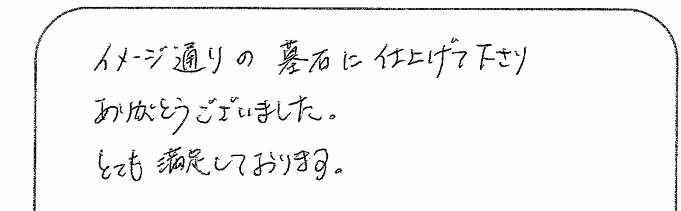 イメージ通りの墓石に仕上げて下さり
ありがとうございました。
とても満足しております。